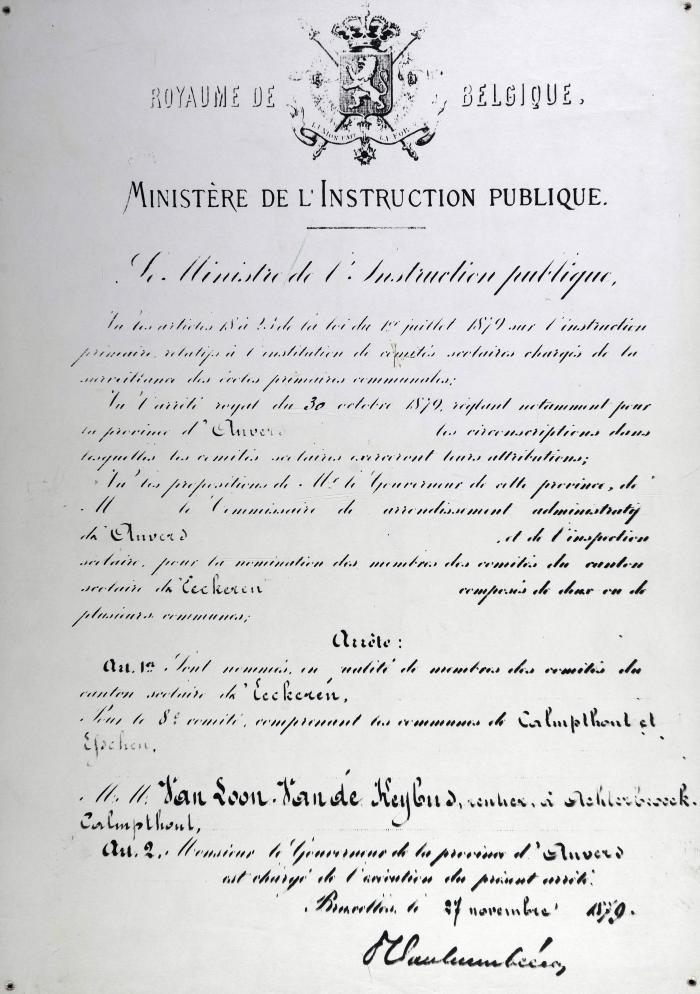 ROYAUME DE BELGIQUE.
L'UNION FAIT LA FORCE
MINISTÈRE DE L'INSTRUCTION PUBLIQUE.
Le Ministre de l'Instruction publique,
Vu les articles 18 à 23 de la loi du 1er juillet 1879 sur l'instruction
primaire, relatifs à l'institution de comités scolaires chargés de la
surveillance des écoles primaires communales;
Vu l'arrêté royal du 30 octobre 1879, réglant notamment pour
la province d'Anvers les circonscriptions dans
lesquelles les comités scolaires exerceront leurs attributions;
Vu les propositions de Mr le Gouverneur de cette province, de
M le Commissaire de arrondissement administratif
d'Anvers, et de l'inspection
scolaire, pour la nomination des membres des comités du canton
scolaire d'Eeckeren composés de deux ou de
plusieurs communes;
Arrête:
Art. 1er Sont nommés, en qualité de membres des comités du
canton scolaire d'Eeckeren,
Pour le 8e comité, comprenant les communes de Calmpthout et
Esschen,
M.M. Van Loon-Van de Keybus, rentier, à Achterbroeck-
Calmpthout,
Art. 2. Monsieur le Gouverneur de la province d'Anvers
est chargé de l'exécution du présent arrêté.
Bruxelles, le 27 novembre 1879.